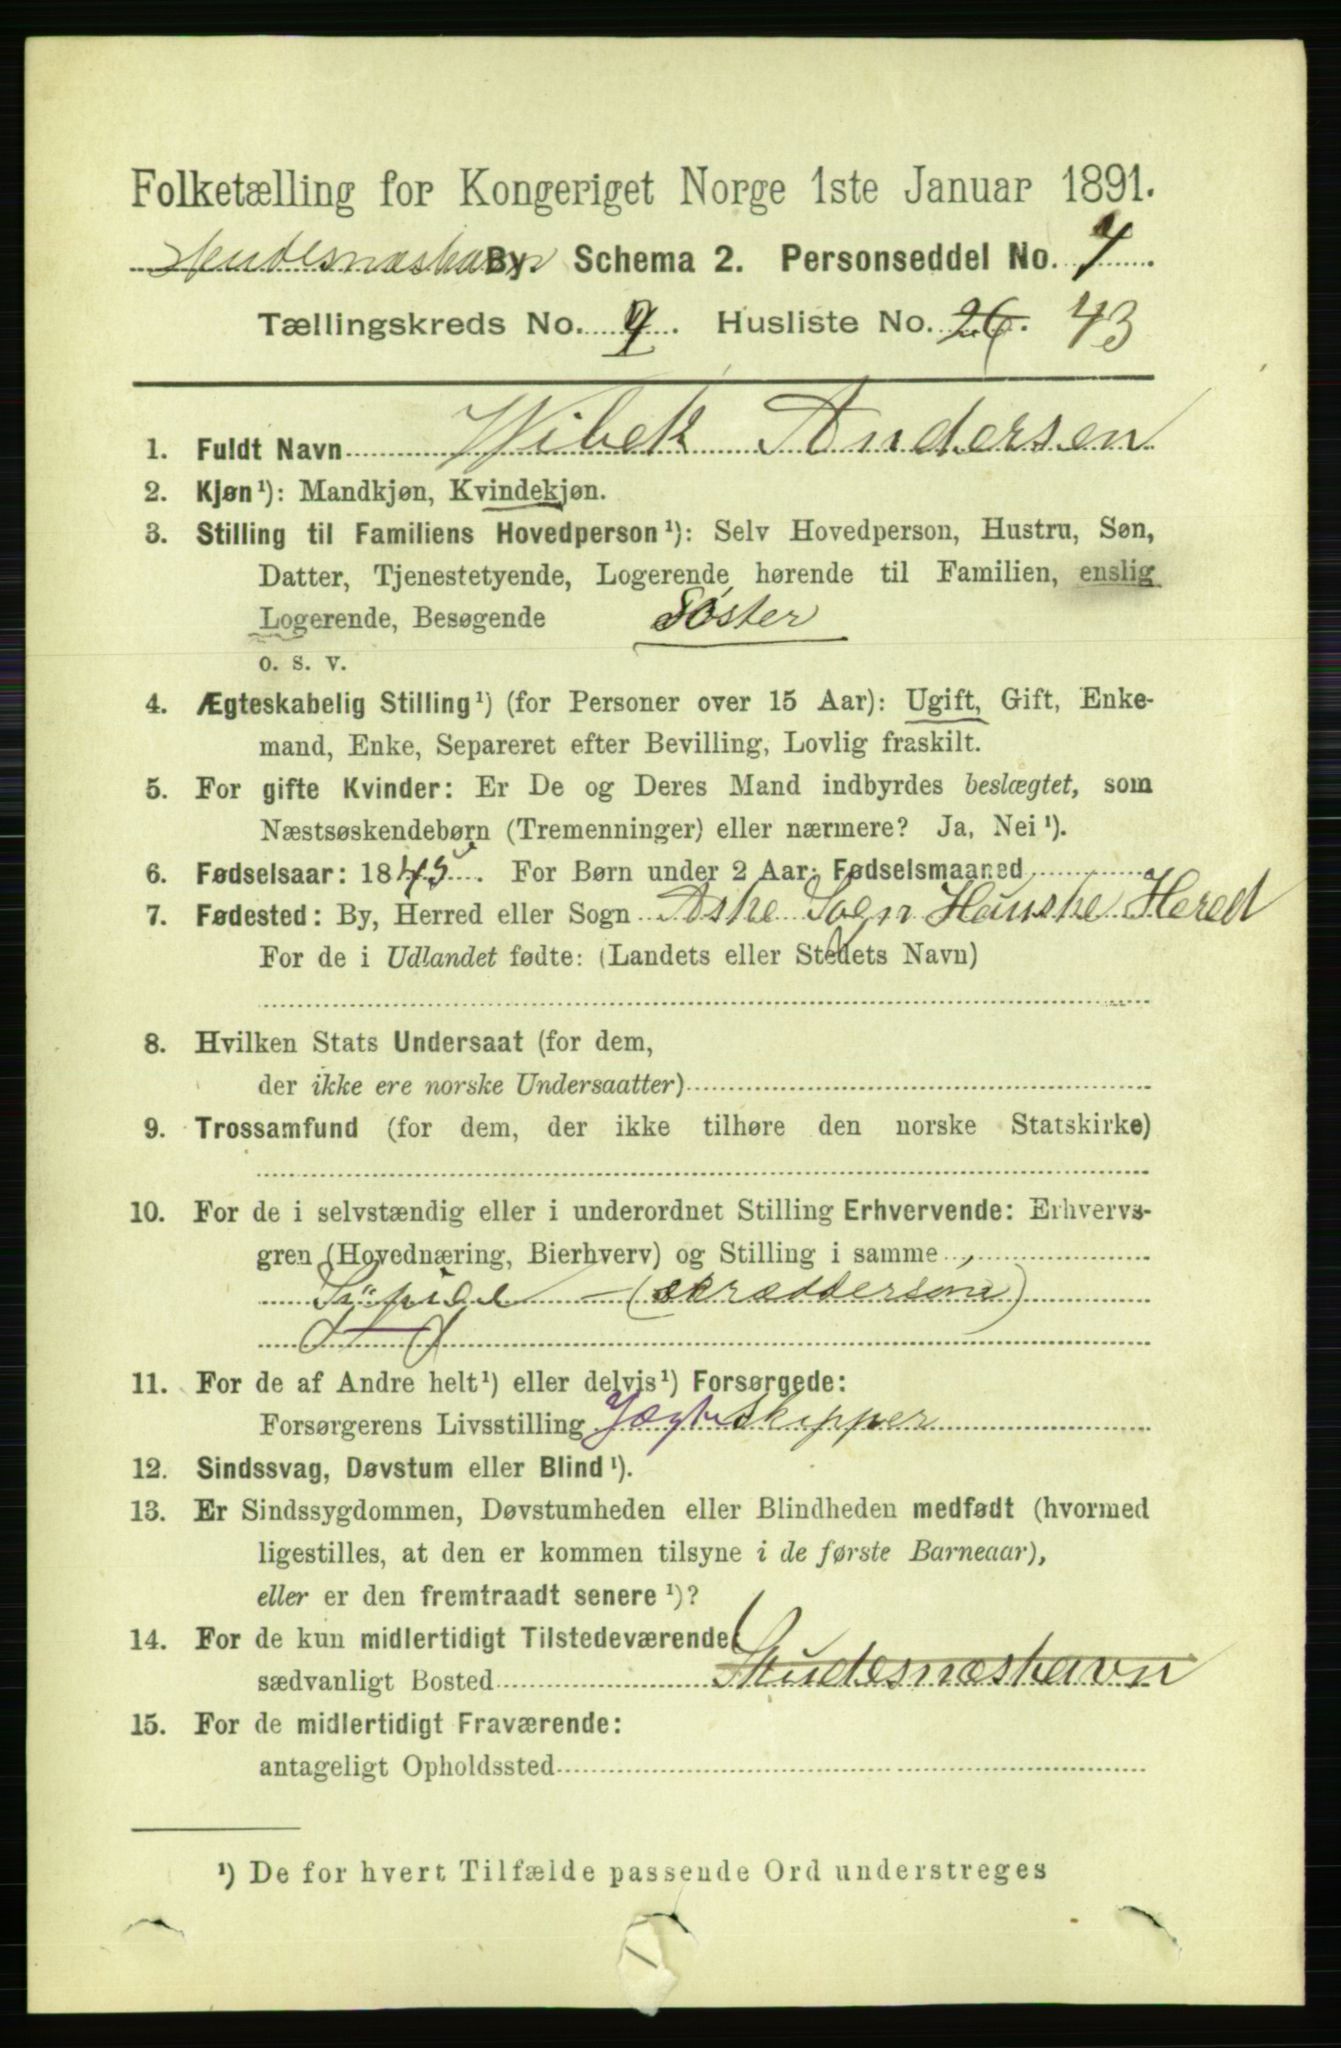 Folketælling for Kongeriget Norge 1ste Januar 1891.
Skudesneshavn By. Schema 2. Personseddel No. 7
Tællingskreds No. . Husliste No. 26. 43
1. Fuldt Navn Wibek Andersen
2. Kjøn¹): Mandkjøn, Kvindekjøn.
3. Stilling til Familiens Hovedperson¹): Selv Hovedperson, Hustru, Søn,
Datter, Tjenestetyende, Logerende hørende til Familien, enslig
Logerende, Besøgende Søster
o. s. v.
4. Ægteskabelig Stilling¹) (for Personer over 15 Aar): Ugift, Gift, Enke-
mand, Enke, Separeret efter Bevilling, Lovlig fraskilt.
5. For gifte Kvinder: Er De og Deres Mand indbyrdes beslægtet, som
Næstsøskendebørn (Tremenninger) eller nærmere? Ja, Nei¹).
6. Fødselsaar: 1845. For Børn under 2 Aar: Fødselsmaaned
7. Fødested: By, Herred eller Sogn Aske Sogn Hauske Hered
For de i Udlandet fødte: (Landets eller Stedets Navn)
8. Hvilken Stats Undersaat (for dem,
der ikke ere norske Undersaatter)
9. Trossamfund (for dem, der ikke tilhøre den norske Statskirke)
10. For de i selvstændig eller i underordnet Stilling Erhvervende: Erhvervs-
gren (Hovednæring, Bierhverv) og Stilling i samme
Sypige (skræddersøm)
11. For de af Andre helt¹) eller delvis¹) Forsørgede:
Forsørgerens Livsstilling Jægtskipper
12. Sindssvag, Døvstum eller Blind¹).
13. Er Sindssygdommen, Døvstumheden eller Blindheden medfødt (hvormed
ligestilles, at den er kommen tilsyne i de første Barneaar),
eller er den fremtraadt senere¹)?
14. For de kun midlertidigt Tilstedeværende:
sædvanligt Bosted Skudesneshavn
15. For de midlertidigt Fraværende:
antageligt Opholdssted
¹) De for hvert Tilfælde passende Ord understreges